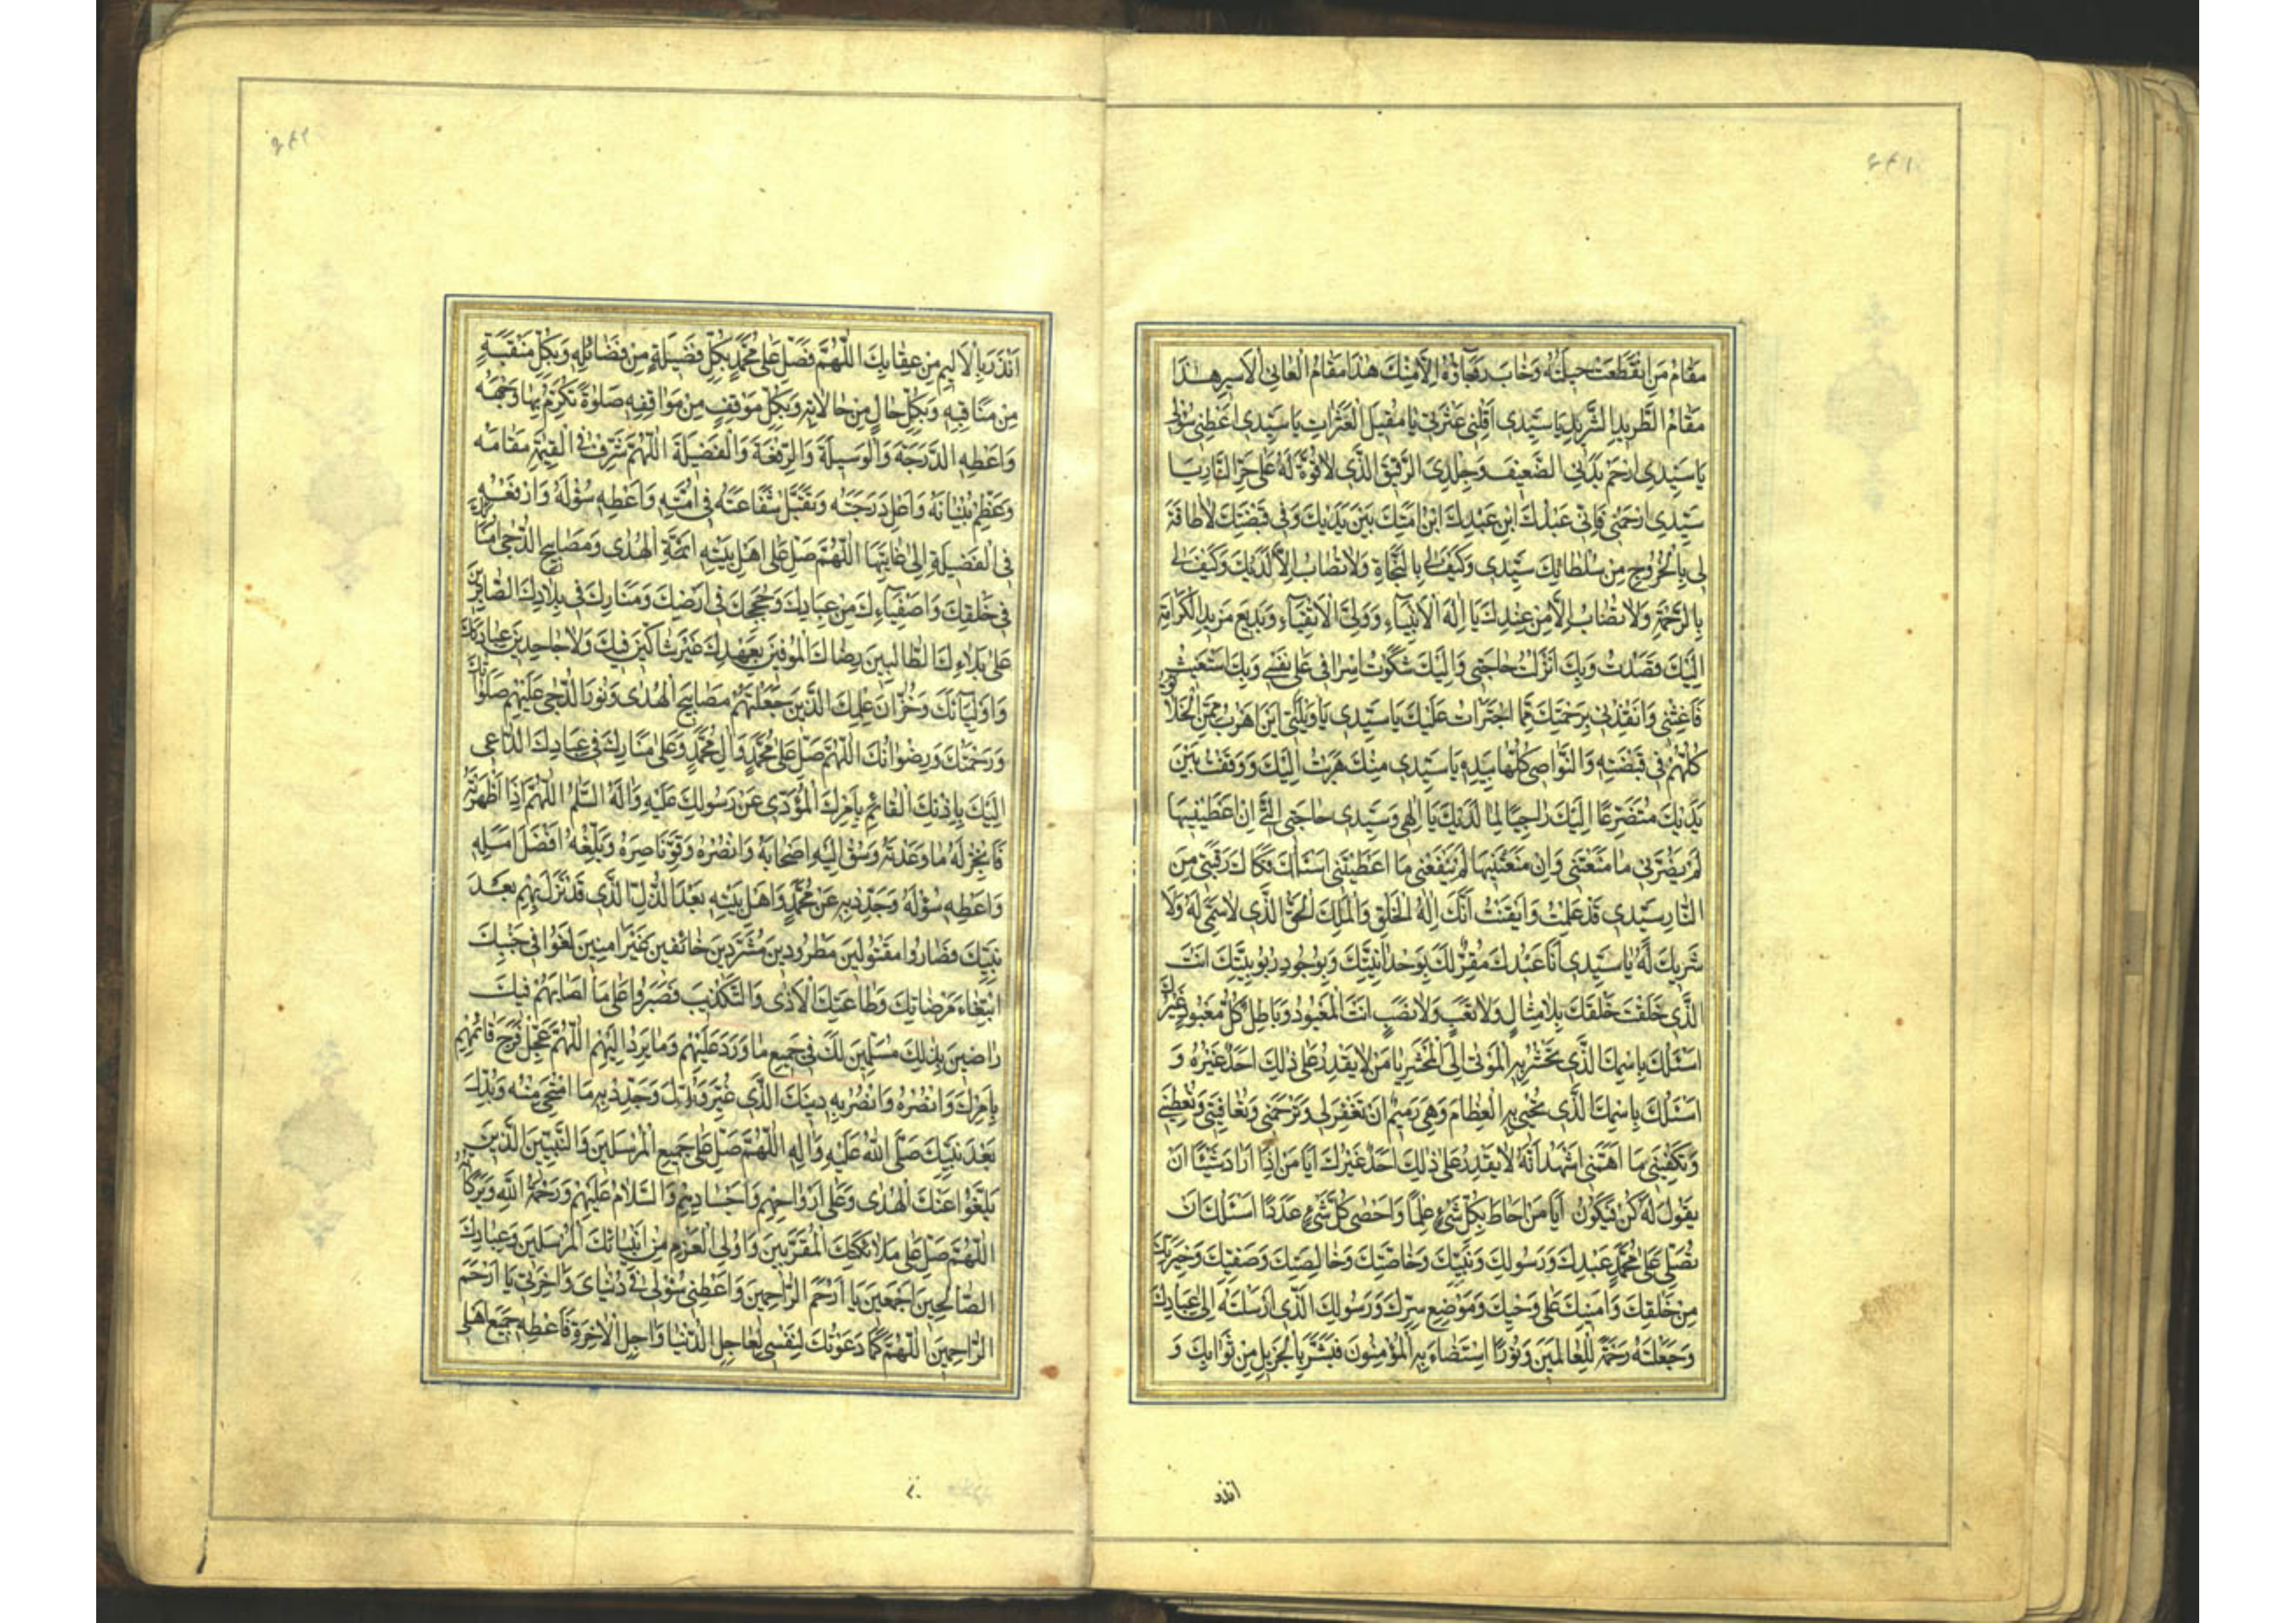 مَقَامُ مَنِ انْقَطَعَتْ حِيلَتُهُ وَخَابَ رَجَاؤُهُ اِلَّا مِنْكَ هٰذَا مَقَامُ الْعَانِي الْاَسِيرِ هٰذَا
مَقَامُ الطَّرِيدِ الشَّرِيدِ يَا سَيِّدِي اَقِلْنِي عَثْرَتِي يَا مُقِيلَ الْعَثَرَاتِ يَا سَيِّدِي اَعْطِنِي سُؤْلِي
يَا سَيِّدِي ارْحَمْ بَدَنِيَ الضَّعِيفَ وَجِلْدِيَ الرَّقِيقَ الَّذِي لَا قُوَّةَ لَهُ عَلٰى حَرِّ النَّارِ يَا
سَيِّدِي ارْحَمْنِي فَاِنِّي عَبْدُكَ ابْنُ عَبْدِكَ ابْنُ اَمَتِكَ بَيْنَ يَدَيْكَ وَفِي قَبْضَتِكَ لَا طَاقَةَ
لِي بِالْخُرُوجِ مِنْ سُلْطَانِكَ سَيِّدِي وَكَيْفَ لِي بِالنَّجَاةِ وَلَا تُصَابُ اِلَّا لَدَيْكَ وَكَيْفَ لِي
بِالرَّحْمَةِ وَلَا تُصَابُ اِلَّا مِنْ عِنْدِكَ يَا اِلٰهَ الْاَنْبِيَاءِ وَوَلِيَّ الْاَتْقِيَاءِ وَبَدِيعَ مَزِيدِ الْكَرَامَةِ
اِلَيْكَ قَصَدْتُ وَبِكَ اَنْزَلْتُ حَاجَتِي وَاِلَيْكَ شَكَوْتُ اِسْرَافِي عَلٰى نَفْسِي وَبِكَ اسْتَغَيْثُ
فَاَغِثْنِي وَانْقِذْنِي بِرَحْمَتِكَ مِمَّا اجْتَرَاْتُ عَلَيْكَ يَا سَيِّدِي يَا وَيْلَتِي اَيْنَ اَهْرُبُ مِمَّنِ الْخَلَائِقُ
كُلُّهُمْ فِي قَبْضَتِهِ وَالنَّوَاصِي كُلُّهَا بِيَدِهِ يَا سَيِّدِي مِنْكَ هَرَبْتُ اِلَيْكَ وَوَقَفْتُ بَيْنَ
يَدَيْكَ مُتَضَرِّعًا اِلَيْكَ رَاجِيًا لِمَا لَدَيْكَ يَا اِلٰهِي وَسَيِّدِي حَاجَتِي الَّتِي اِنْ اَعْطَيْتَنِيهَا
لَمْ يَضُرَّنِي مَا مَنَعْتَنِي وَاِنْ مَنَعْتَنِيهَا لَمْ يَنْفَعْنِي مَا اَعْطَيْتَنِي اَسْئَلُكَ فَكَاكَ رَقَبَتِي مِنَ
النَّارِ سَيِّدِي قَدْ عَلِمْتُ وَاَيْقَنْتُ اَنَّكَ اِلٰهُ الْخَلْقِ وَالْمَلِكُ الْحَقُّ الَّذِي لَا سَمِيَّ لَهُ وَلَا
شَرِيكَ لَهُ يَا سَيِّدِي اَنَا عَبْدُكَ مُقِرٌّ لَكَ بِوَحْدَانِيَّتِكَ وَبِوُجُودِ رُبُوبِيَّتِكَ اَنْتَ
الَّذِي خَلَقْتَ خَلْقَكَ بِلَا مِثَالٍ وَلَا تَعَبٍ وَلَا نَصَبٍ اَنْتَ الْمَعْبُودُ وَبَاطِلٌ كُلُّ مَعْبُودٍ غَيْرُكَ
اَسْئَلُكَ بِاسْمِكَ الَّذِي تَحْشُرُ بِهِ الْمَوْتٰى اِلَى الْمَحْشَرِ يَا مَنْ لَا يَقْدِرُ عَلٰى ذٰلِكَ اَحَدٌ غَيْرُهُ وَ
اَسْئَلُكَ بِاسْمِكَ الَّذِي تُحْيِي بِهِ الْعِظَامَ وَهِيَ رَمِيمٌ اَنْ تَغْفِرَ لِي وَتَرْحَمَنِي وَتُعَافِيَنِي وَتُعْطِيَنِي
وَتَكْفِيَنِي مَا اَهَمَّنِي اَشْهَدُ اَنَّهُ لَا يَقْدِرُ عَلٰى ذٰلِكَ اَحَدٌ غَيْرُكَ اَيَا مَنْ اِذَا اَرَادَ شَيْئًا اَنْ
يَقُولَ لَهُ كُنْ فَيَكُونُ اَيَا مَنْ اَحَاطَ بِكُلِّ شَيْءٍ عِلْمًا وَاَحْصٰى كُلَّ شَيْءٍ عَدَدًا اَسْئَلُكَ اَنْ
تُصَلِّيَ عَلٰى مُحَمَّدٍ عَبْدِكَ وَرَسُولِكَ وَنَبِيِّكَ وَخَاصَّتِكَ وَخَالِصَتِكَ وَصَفِيِّكَ وَخِيَرَتِكَ
مِنْ خَلْقِكَ وَاَمِينِكَ عَلٰى وَحْيِكَ وَمَوْضِعِ سِرِّكَ وَرَسُولِكَ الَّذِي اَرْسَلْتَهُ اِلٰى عِبَادِكَ
وَجَعَلْتَهُ رَحْمَةً لِلْعَالَمِينَ وَنُورًا اسْتَضَاءَ بِهِ الْمُؤْمِنُونَ فَبَشَّرَ بِالْجَزِيلِ مِنْ ثَوَابِكَ وَ
انذر
اَنْذَرَ بِالْاَلِيمِ مِنْ عِقَابِكَ اللّٰهُمَّ فَصَلِّ عَلٰى مُحَمَّدٍ بِكُلِّ فَضِيلَةٍ مِنْ فَضَائِلِهِ وَبِكُلِّ مَنْقَبَةٍ
مِنْ مَنَاقِبِهِ وَبِكُلِّ حَالٍ مِنْ حَالَاتِهِ وَبِكُلِّ مَوْقِفٍ مِنْ مَوَاقِفِهِ صَلٰوةً تُكْرِمُ بِهَا وَجْهَهُ
وَاَعْطِهِ الدَّرَجَةَ وَالْوَسِيلَةَ وَالرِّفْعَةَ وَالْفَضِيلَةَ اللّٰهُمَّ شَرِّفْ فِي الْقِيٰمَةِ مَقَامَهُ
وَعَظِّمْ بُنْيَانَهُ وَاَعْلِ دَرَجَتَهُ وَتَقَبَّلْ شَفَاعَتَهُ فِي اُمَّتِهِ وَاَعْطِهِ سُؤْلَهُ وَارْفَعْهُ
فِي الْفَضِيلَةِ اِلٰى غَايَتِهَا اللّٰهُمَّ صَلِّ عَلٰى اَهْلِ بَيْتِهِ اَئِمَّةِ الْهُدٰى وَمَصَابِيحِ الدُّجٰى اُمَنَائِكَ
فِي خَلْقِكَ وَاَصْفِيَاءِكَ مِنْ عِبَادِكَ وَحُجَجِكَ فِي اَرْضِكَ وَمَنَارِكَ فِي بِلَادِكَ الصَّابِرِينَ
عَلٰى بَلَاءِكَ الطَّالِبِينَ رِضَاكَ الْمُوفِينَ بِعَهْدِكَ غَيْرَ شَاكِّينَ فِيكَ وَلَا جَاحِدِينَ عِبَادَتَكَ
وَاَوْلِيَائِكَ وَخُزَّانَ عِلْمِكَ الَّذِينَ جَعَلْتَهُمْ مَصَابِيحَ الْهُدٰى وَنُورَ الدُّجٰى عَلَيْهِمْ صَلَوَاتُكَ
وَرَحْمَتُكَ وَرِضْوَانُكَ اللّٰهُمَّ صَلِّ عَلٰى مُحَمَّدٍ وَاٰلِ مُحَمَّدٍ وَعَلٰى مَنَارِكَ فِي عِبَادِكَ الدَّاعِي
اِلَيْكَ بِاِذْنِكَ الْقَائِمِ بِاَمْرِكَ الْمُؤَدِّي عَنْ رَسُولِكَ عَلَيْهِ وَاٰلِهِ السَّلٰمُ اللّٰهُمَّ اِذَا اَظْهَرْتَهُ
فَاَنْجِزْ لَهُ مَا وَعَدْتَهُ وَسُقْ اِلَيْهِ اَصْحَابَهُ وَانْصُرْهُ وَقَوِّ نَاصِرَهُ وَبَلِّغْهُ اَفْضَلَ اَمَلِهِ
وَاَعْطِهِ سُؤْلَهُ وَجَدِّدْ بِهِ عَنْ مُحَمَّدٍ وَاَهْلِ بَيْتِهِ بَعْدَ الذُّلِّ الَّذِي قَدْ نَزَلَ بِهِمْ بَعْدَ
نَبِيِّكَ فَصَارُوا مَقْتُولِينَ مَطْرُودِينَ مُشَرَّدِينَ خَائِفِينَ غَيْرَ اٰمِنِينَ لَقُوا فِي جَنْبِكَ
ابْتِغَاءَ مَرْضَاتِكَ وَطَاعَتِكَ الْاَذٰى وَالتَّكْذِيبَ فَصَبَرُوا عَلٰى مَا اَصَابَهُمْ فِيكَ
رَاضِينَ بِذٰلِكَ مُسَلِّمِينَ لَكَ فِي جَمِيعِ مَا وَرَدَ عَلَيْهِمْ وَمَا يَرِدُ اِلَيْهِمْ اللّٰهُمَّ عَجِّلْ فَرَجَ قَائِمِهِمْ
بِاَمْرِكَ وَانْصُرْهُ وَانْصُرْ بِهِ دِينَكَ الَّذِي غُيِّرَ وَبُدِّلَ وَجَدِّدْ بِهِ مَا امْتَحٰى مِنْهُ وَبُدِّلَ
بَعْدَ نَبِيِّكَ صَلَّى اللّٰهُ عَلَيْهِ وَاٰلِهِ اللّٰهُمَّ صَلِّ عَلٰى جَمِيعِ الْمُرْسَلِينَ وَالنَّبِيِّينَ الَّذِينَ
بَلَّغُوا عَنْكَ الْهُدٰى وَعَلٰى اَرْوَاحِهِمْ وَاَجْسَادِهِمْ وَالسَّلَامُ عَلَيْهِمْ وَرَحْمَةُ اللّٰهِ وَبَرَكَاتُهُ
اللّٰهُمَّ صَلِّ عَلٰى مَلَائِكَتِكَ الْمُقَرَّبِينَ وَاُولِي الْعَزْمِ مِنْ اَنْبِيَائِكَ الْمُرْسَلِينَ وَعِبَادِكَ
الصَّالِحِينَ اَجْمَعِينَ يَا اَرْحَمَ الرَّاحِمِينَ وَاَعْطِنِي سُؤْلِي فِي دُنْيَايَ وَاٰخِرَتِي يَا اَرْحَمَ
الرَّاحِمِينَ اللّٰهُمَّ كَمَا دَعَوْتُكَ لِنَفْسِي لِعَاجِلِ الدُّنْيَا وَاٰجِلِ الْاٰخِرَةِ فَاَعْطِهِ جَمِيعَ اَهْلِي